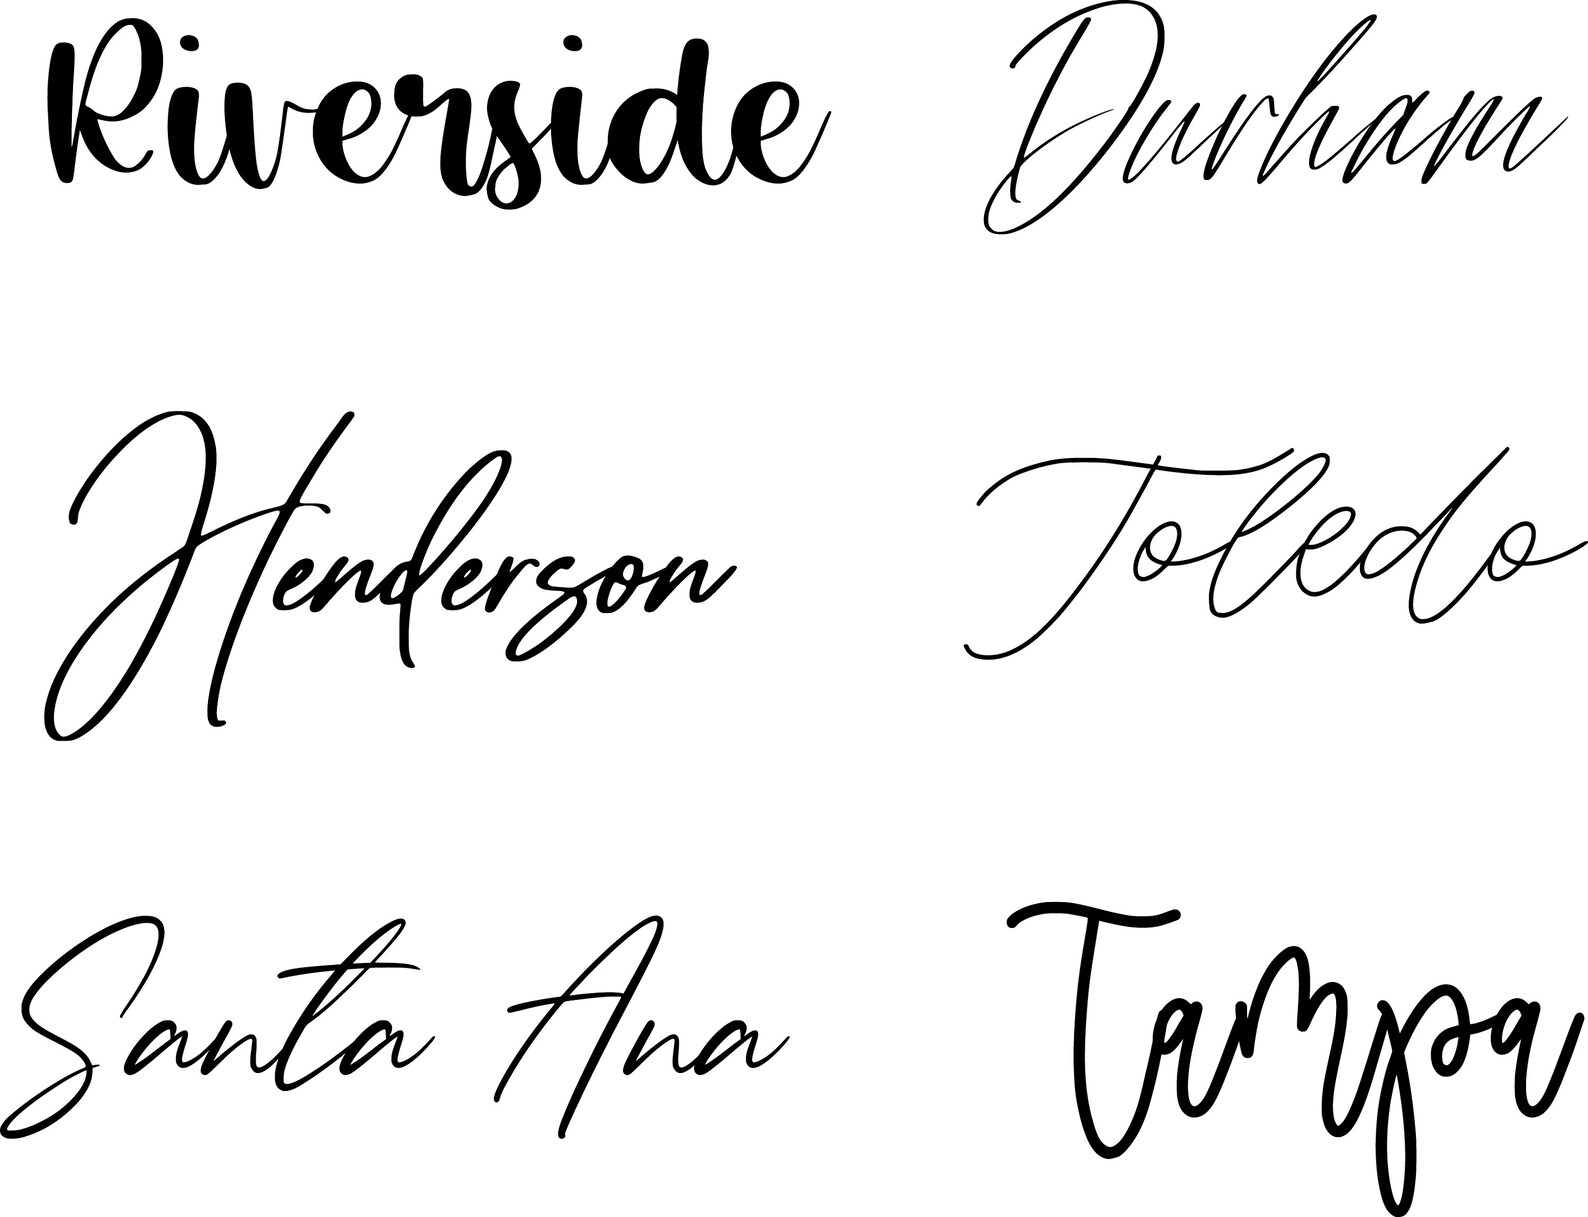 Riverside
Durham
Henderson
Toledo
Santa Ana
Tampa